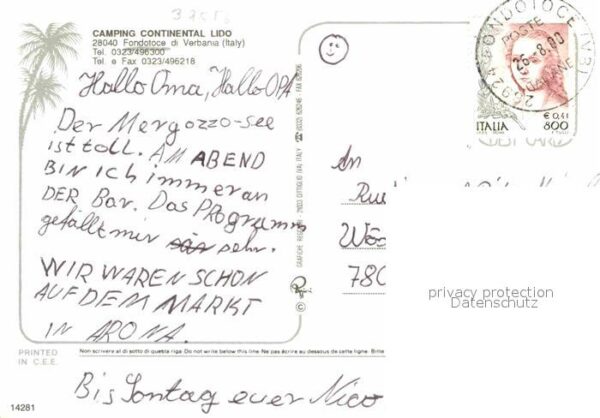 CAMPING CONTINENTAL LIDO
28040 Fondotoce di Verbania (Italy)
Tel. 0323/496300
Tel. e Fax 0323/496218
Hallo Oma, Hallo OPA
Der Mergozzo-see
ist toll. AM ABEND
BIN ich immer an
DER Bar. Das PROgramm
gefällt mir sehr.
WIR WAREN SCHON
AUF DEM MARKT
IN ARONA.
PRINTED
IN C.E.E.
Non scrivere al di sotto di questa riga Do not write below this line Ne pas écrire au dessous de cette ligne
Bis Sontag euer Nico
14281
POSTE
26-8.00
ITALIANE
ITALIA
€ 0,41
800
An
780
privacy protection
Datenschutz